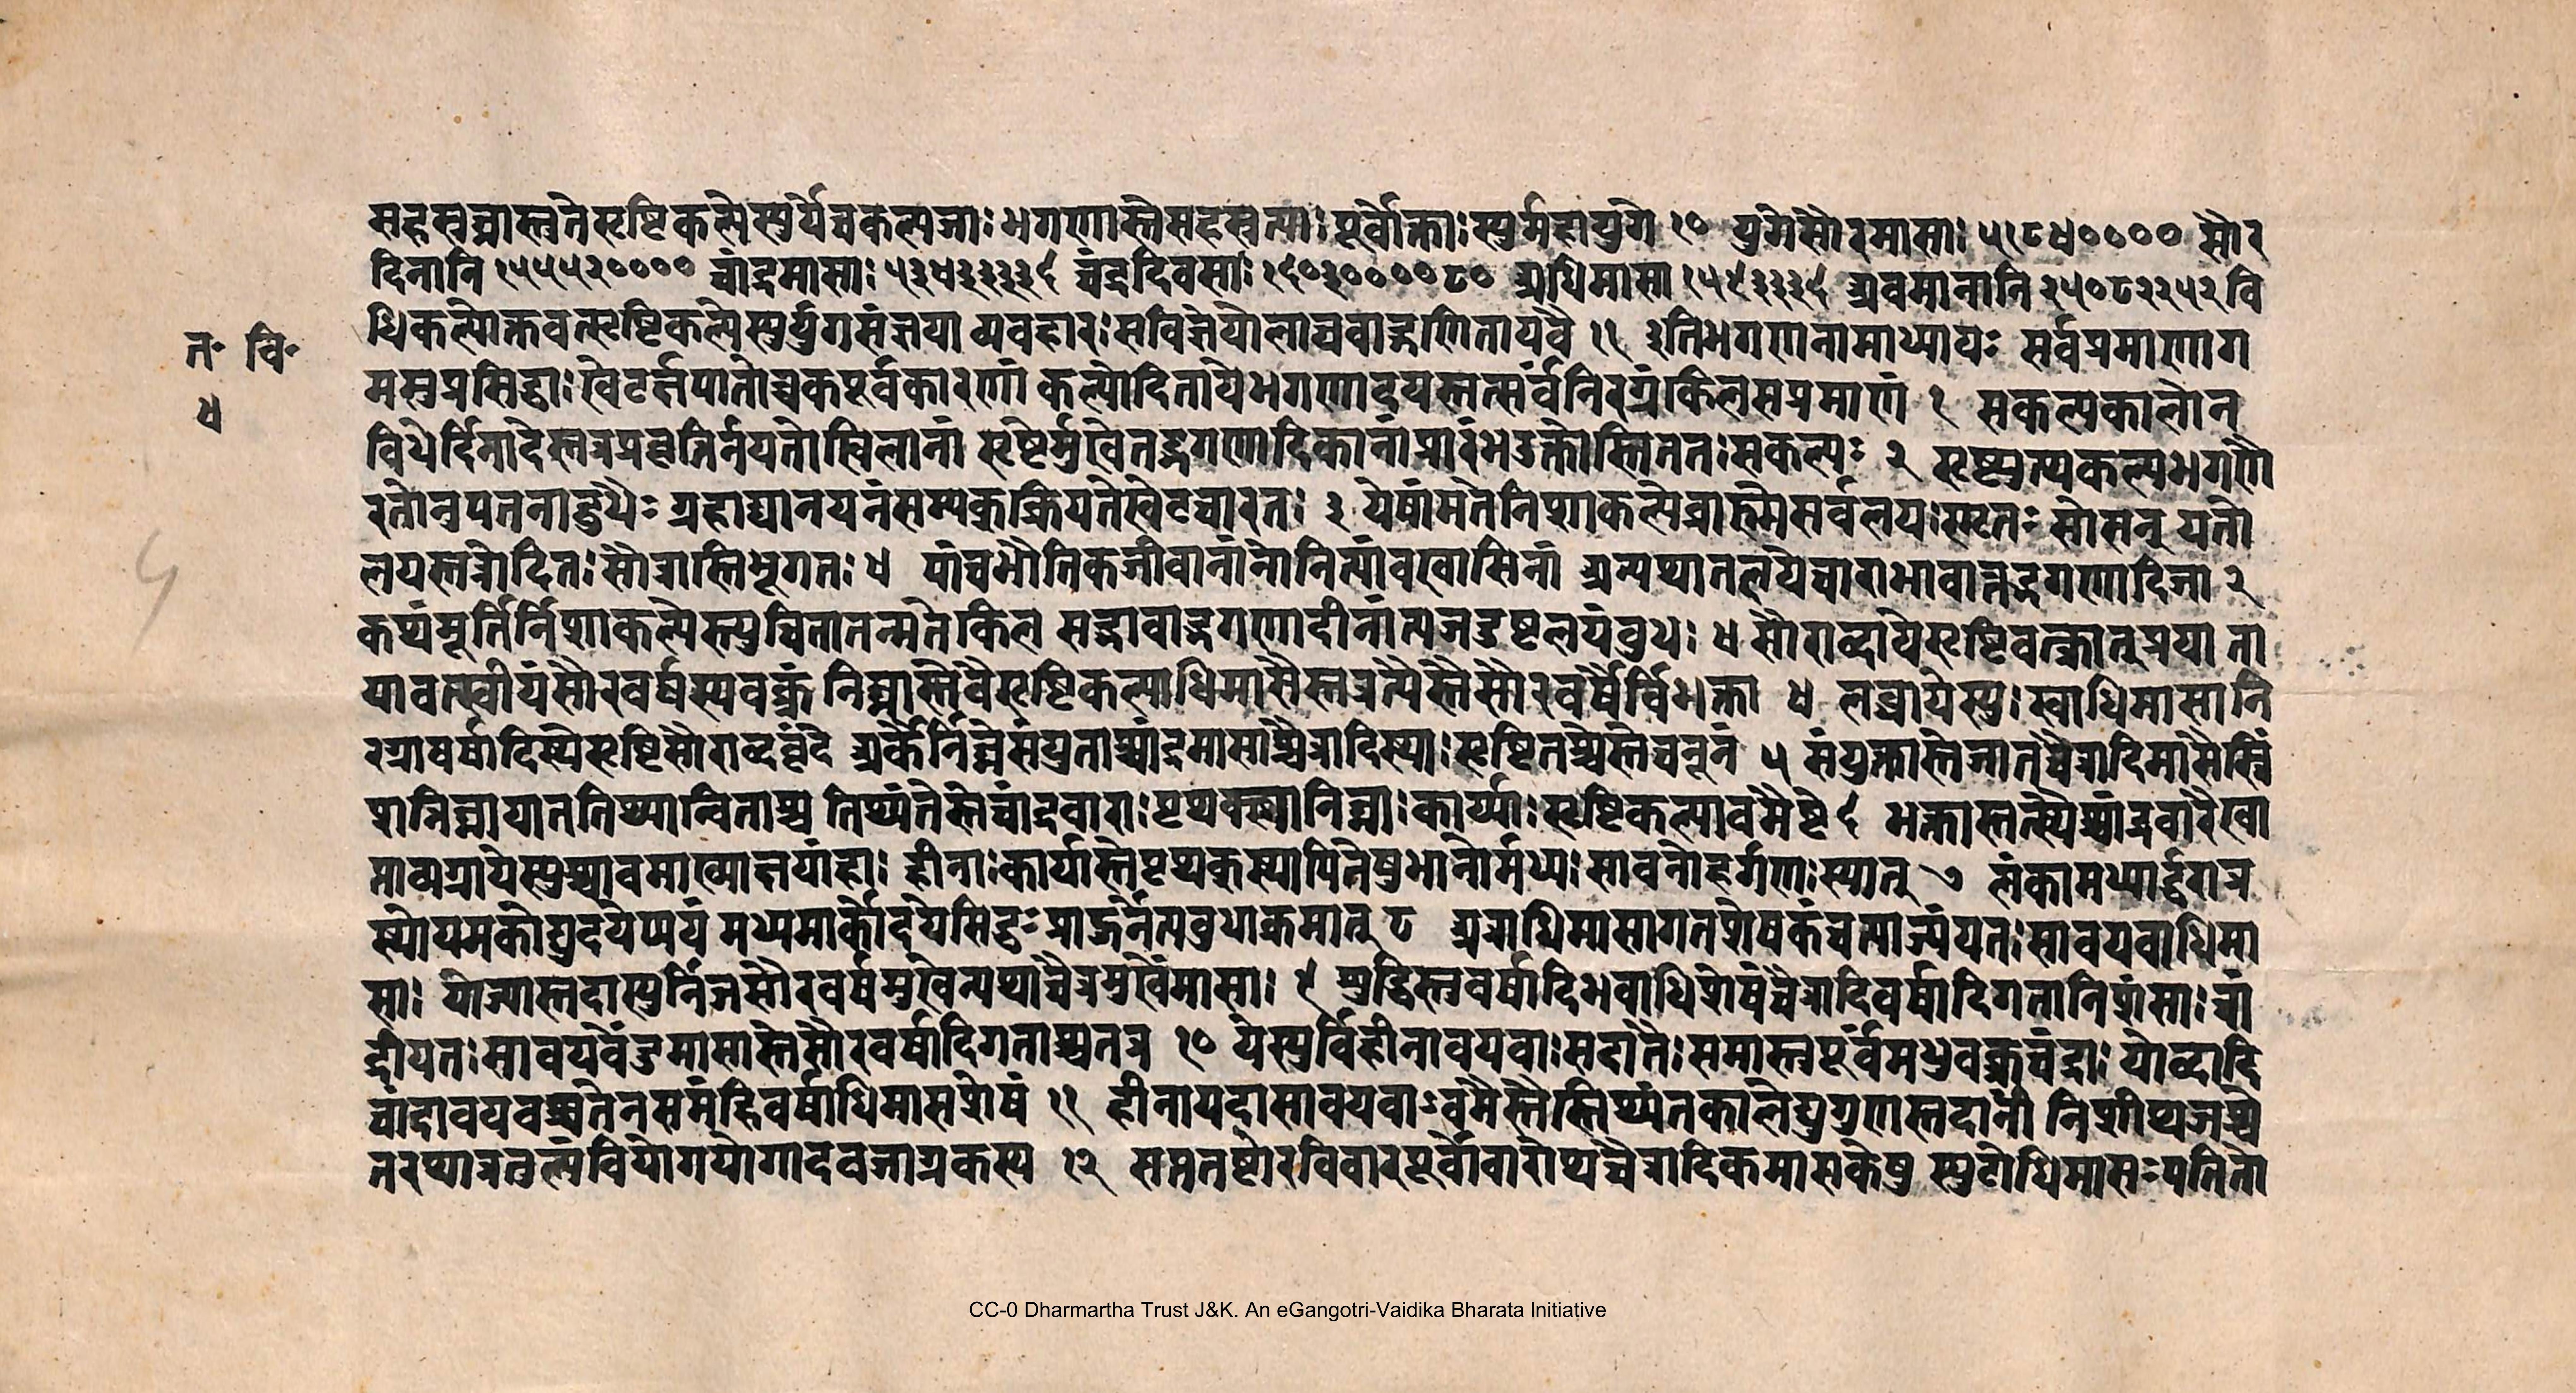 सहस्रघ्नास्तुतेसृष्टिकल्पेस्युर्येचकल्पजाः भगणास्तेसहस्रत्याः पूर्वोक्ताः स्युर्महायुगे १० युगेसौरमासाः ५१८४०००० सौर
दिनानि १५५५२०००० चांद्रमासाः ५३४३३३३६ चंद्रदिवसाः १६०३००००८० अधिमासा १५९३३३६ अवमानानि २५०८२२५२ वि
धिकल्पोक्तवत्सृष्टिकल्पेस्युर्युगसंज्ञया व्यवहारः सविज्ञेयोलाघवाद्गणितायवै ११ इतिभगणानामाध्यायः सर्वप्रमाणाग
मसुप्रसिद्धाः खेटर्क्षपातोच्चकपूर्वकाराणां कल्पोदितायेभगणादयस्तत्सर्वंनिरग्रंकिलसप्रमाणं १ सकल्पकालोन
विधेर्दिनादेस्तत्रप्रवृत्तिर्नयतोखिलानां सृष्टेर्मुखेतद्भगणादिकानांप्रारंभउक्तोस्तिततः सकल्पः २ सृष्ट्युत्पकल्पभगणै
रतोनुपतनाद्बुधैः ग्रहाद्यानयनंसम्यक्क्रियतेखेटचारतः ३ येषांमतेनिशाकल्पेब्राह्मेसर्वलयः स्मृतः सोसन् यतो
लयस्तत्रोदितः सौत्रास्तिभूगतः ४ पांचभौतिकजीवानांनोनित्यांबरवासिनां अन्यथातल्लयेचाराभावात्तद्भगणादिजा २
कथंमूर्तिर्निशाकल्पेस्युचितातन्मतेकिल सद्भावाद्भगणादीनांत्यजदुष्टलयंबुध ः ४ सौराब्दायेसृष्टिवत्क्रातुप्रयाता
यावत्स्वीयंसौरवर्षस्यवक्त्रं निघ्नास्तेवैसृष्टिकल्पाधिमासैस्तत्रत्यैस्तैसौरवर्षैर्विभक्ता ४ लब्धायेस्युः स्वाधिमासानि
रग्रावर्षादिस्थेसृष्टिसौराब्दवृंदे अर्कैर्निघ्नेसंयुताश्चांद्रमासाश्चैत्रादिस्थाः सृष्टितश्चैस्तेचनूनं ५ संयुक्तास्तेजातचैत्रादिमासैस्त्रिं
शन्निघ्नायाततिथ्यान्विताश्च तिथ्यंतेस्तेचांद्रवाराः पृथक्स्थानिघ्नाः कार्य्याः सृष्टिकल्पावमैष्टे ६ भक्तास्तत्स्थैश्चांद्रवारैरवा
माव्यग्रायेस्युश्चावमाख्याज्ञयांहाः हीनाः कार्यास्तेपृथक्स्थापितेषुभानोर्मध्यः सावनोहर्गणः स्यात् ७ लंकामध्यार्द्धरात्र
स्थोयमर्कोद्युदयेप्ययं मध्यमार्कोदयेसिद्धः प्राज्ञैर्नत्यबुधाक्रमात् ८ अत्राधिमासागतशेषकंचत्याज्यंयतः सावयवाधिमा
साः योज्यास्तदास्युर्निजसौरवर्षमुखेन्यथाचैत्रमुखेमासाः ९ शुद्धिस्तुवर्षादिभवाधिशेषंचैत्रादिवर्षादिगतानिशंसाः चां
द्रीयतः सावयवेंदुमासास्तेसौरवर्षादिगताश्चतत्र १० येस्युर्विहीनावयवाः सदातैः समास्तुपूर्वमधुवक्त्रचंद्राः योब्दादि
चांद्रावयवश्चतेनसमंहिवर्षाधिमासशेषं ११ हीनायदासावयवाऽवमैस्तैस्तिथ्यंतकालेद्युगुणास्तदानीं निशीथजश्चे
तरथात्रतुल्यंवियोगयोगादवजाग्रकस्य १२ सप्ततष्टोरविवारपूर्वोवारोथचैत्रादिकमासकेषु स्फुटोधिमासः पतितो
त॰ वि॰
४
५
CC-0 Dharmartha Trust J&K. An eGangotri-Vaidika Bharata Initiative